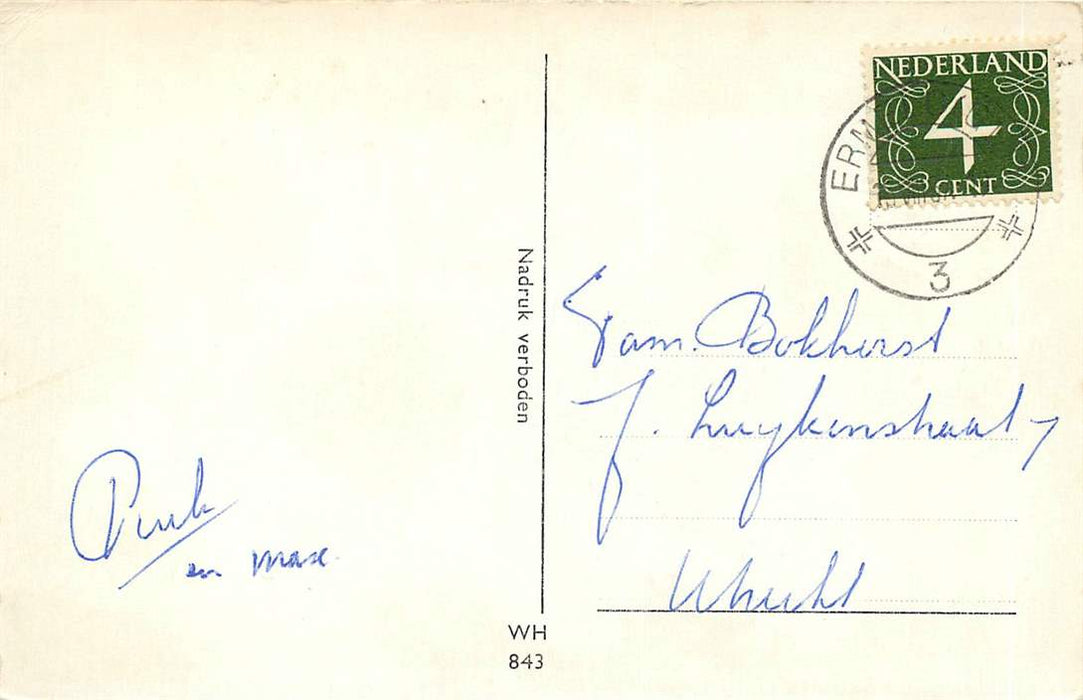 NEDERLAND
4
CENT
ERM
3
Nadruk verboden
Fam. Bokhorst
J. Luykenstraat 7
Utrecht
en Max.
WH
843